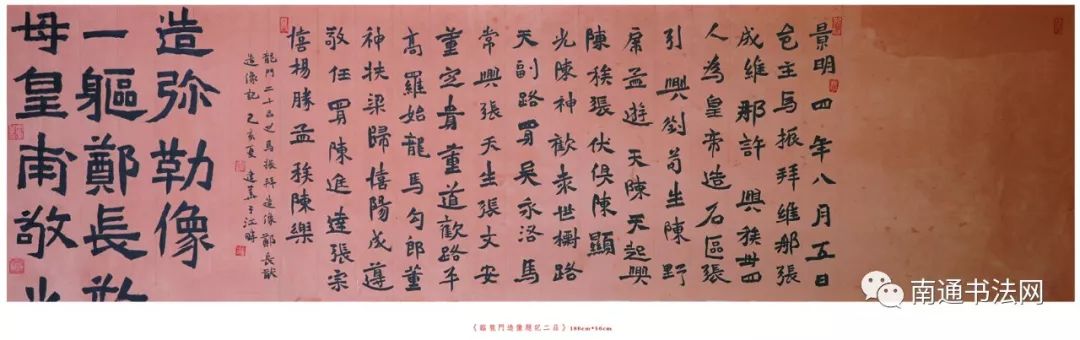 景明四年八月五日
邑主馬振拜維那張
成維那許興族卅四
人為皇帝造石區張
引興劉苟生陳野
席孟遊天陳天起興
陳族張伏俱陳顯
光陳神歡秦世櫥路
天副路買吳永洛馬
常興張天生張文安
董定貴董道歡路平
高羅始龍馬勾郎董
神扶梁歸憘陽成遵
敬任買陳進達張宗
憘楊勝孟族陳樂
龍門二十品之馬振拜造像鄭長猷
造像記己亥夏建于江畔
造弥勒像
一軀鄭長猷
母皇甫敬
南通书法网
《臨龍門造像題記二品》180cm*56cm